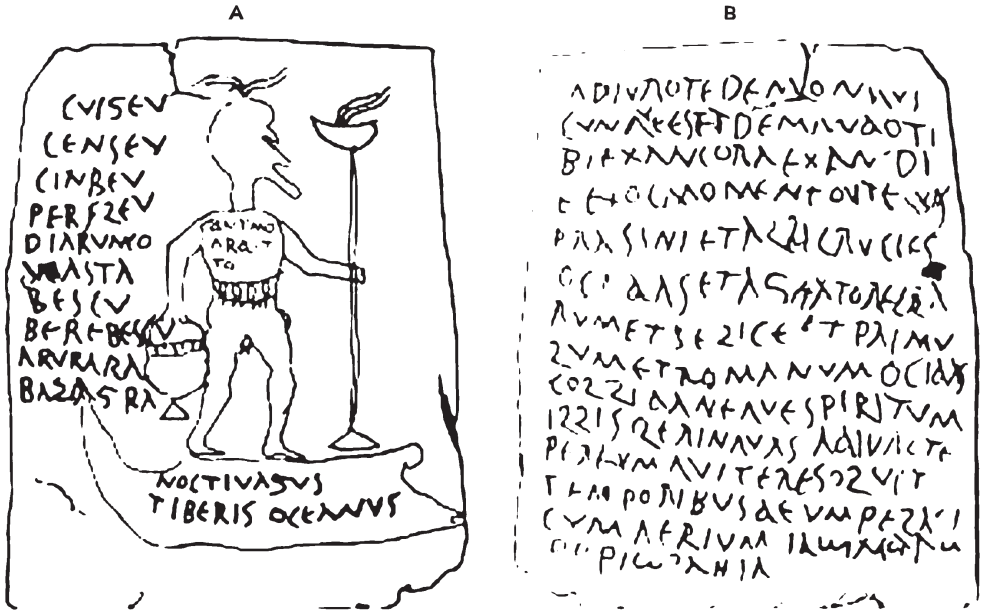 A
CUIGEU
CENSEU
CINBEU
PERFLEU
DIARUNCO
DEASTA
BESCU
BEREBESCU
ARURARA
BAZAGRA
ANTMO
ARAIT
TO
NOCTIVAGUS
TIBERIS OCEANUS
B
ADIURO TE DEMON QUI
CUNQUE ES ET DEMANDO TI
BI EX ANC ORA EX ANC DI
E EX OC MOMENTO UT EQUOS
PRASINI ET ALBI CRUCIES
OCIDAS ET AGITATORE CLA
RUM ET FELICE ET PRIMU
LUM ET ROMANUM OCIDAS
COLLIDA NEQUE SPIRITUM
ILLIS LERINQUAS ADIURO TE
PER EUM QUI TE RESOLVIT
TEMPORIBUS DEUM PELAGI
CUM AERIUM